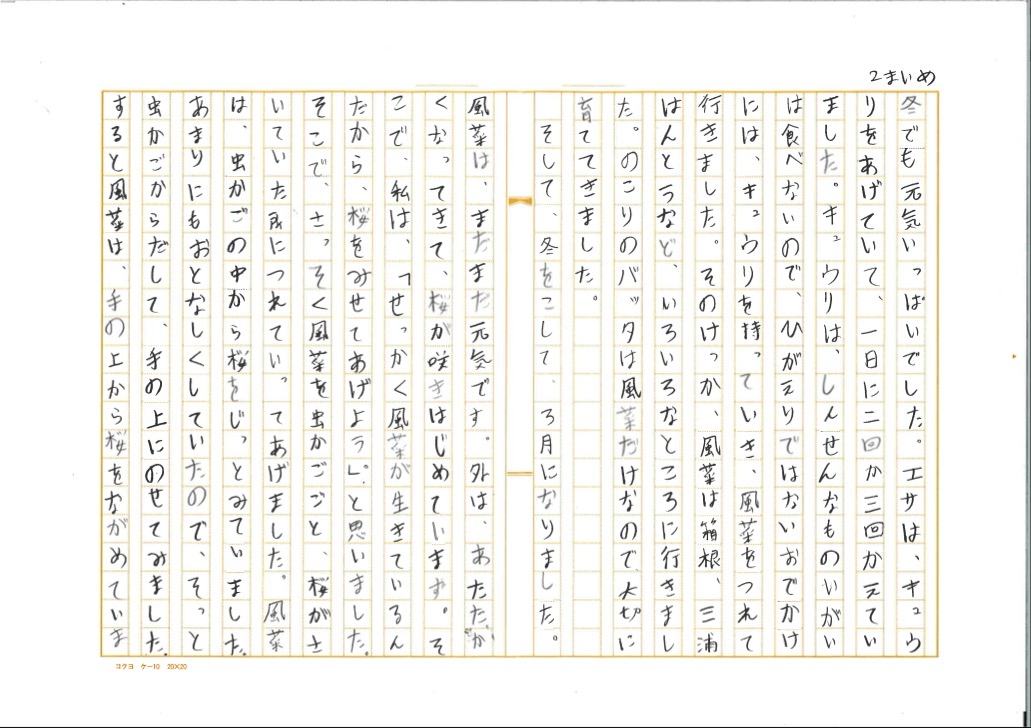 2まいめ
冬でも元気いっぱいでした。エサは、キュウ
リをあげていて、一日に二回か三回かえてい
ました。キュウリは、しんせんなものいがい
は食べないので、ひがえりではないおでかけ
には、キュウリを持っていき、風菜をつれて
行きました。そのけっか、風菜は箱根、三浦
はんとうなど、いろいろなところに行きまし
た。のこりのバッタは風菜だけなので、大切に
育ててきました。
そして、冬をこして、3月になりました。
風菜は、まだまだ元気です。外は、あたたか
くなってきて、桜が咲きはじめています。そ
こで、私は、「せっかく風菜が生きているん
だから、桜をみせてあげよう」。と思いました。
そこで、さっそく風菜を虫かごごと、桜がさ
いていた所につれていってあげました。風菜
は、虫かごの中から桜をじっとみていました。
あまりにもおとなしくしていたので、そっと
虫かごからだして、手の上にのせてみました。
すると風菜は、手の上から桜をながめていま
コクヨ ケー10 20×20